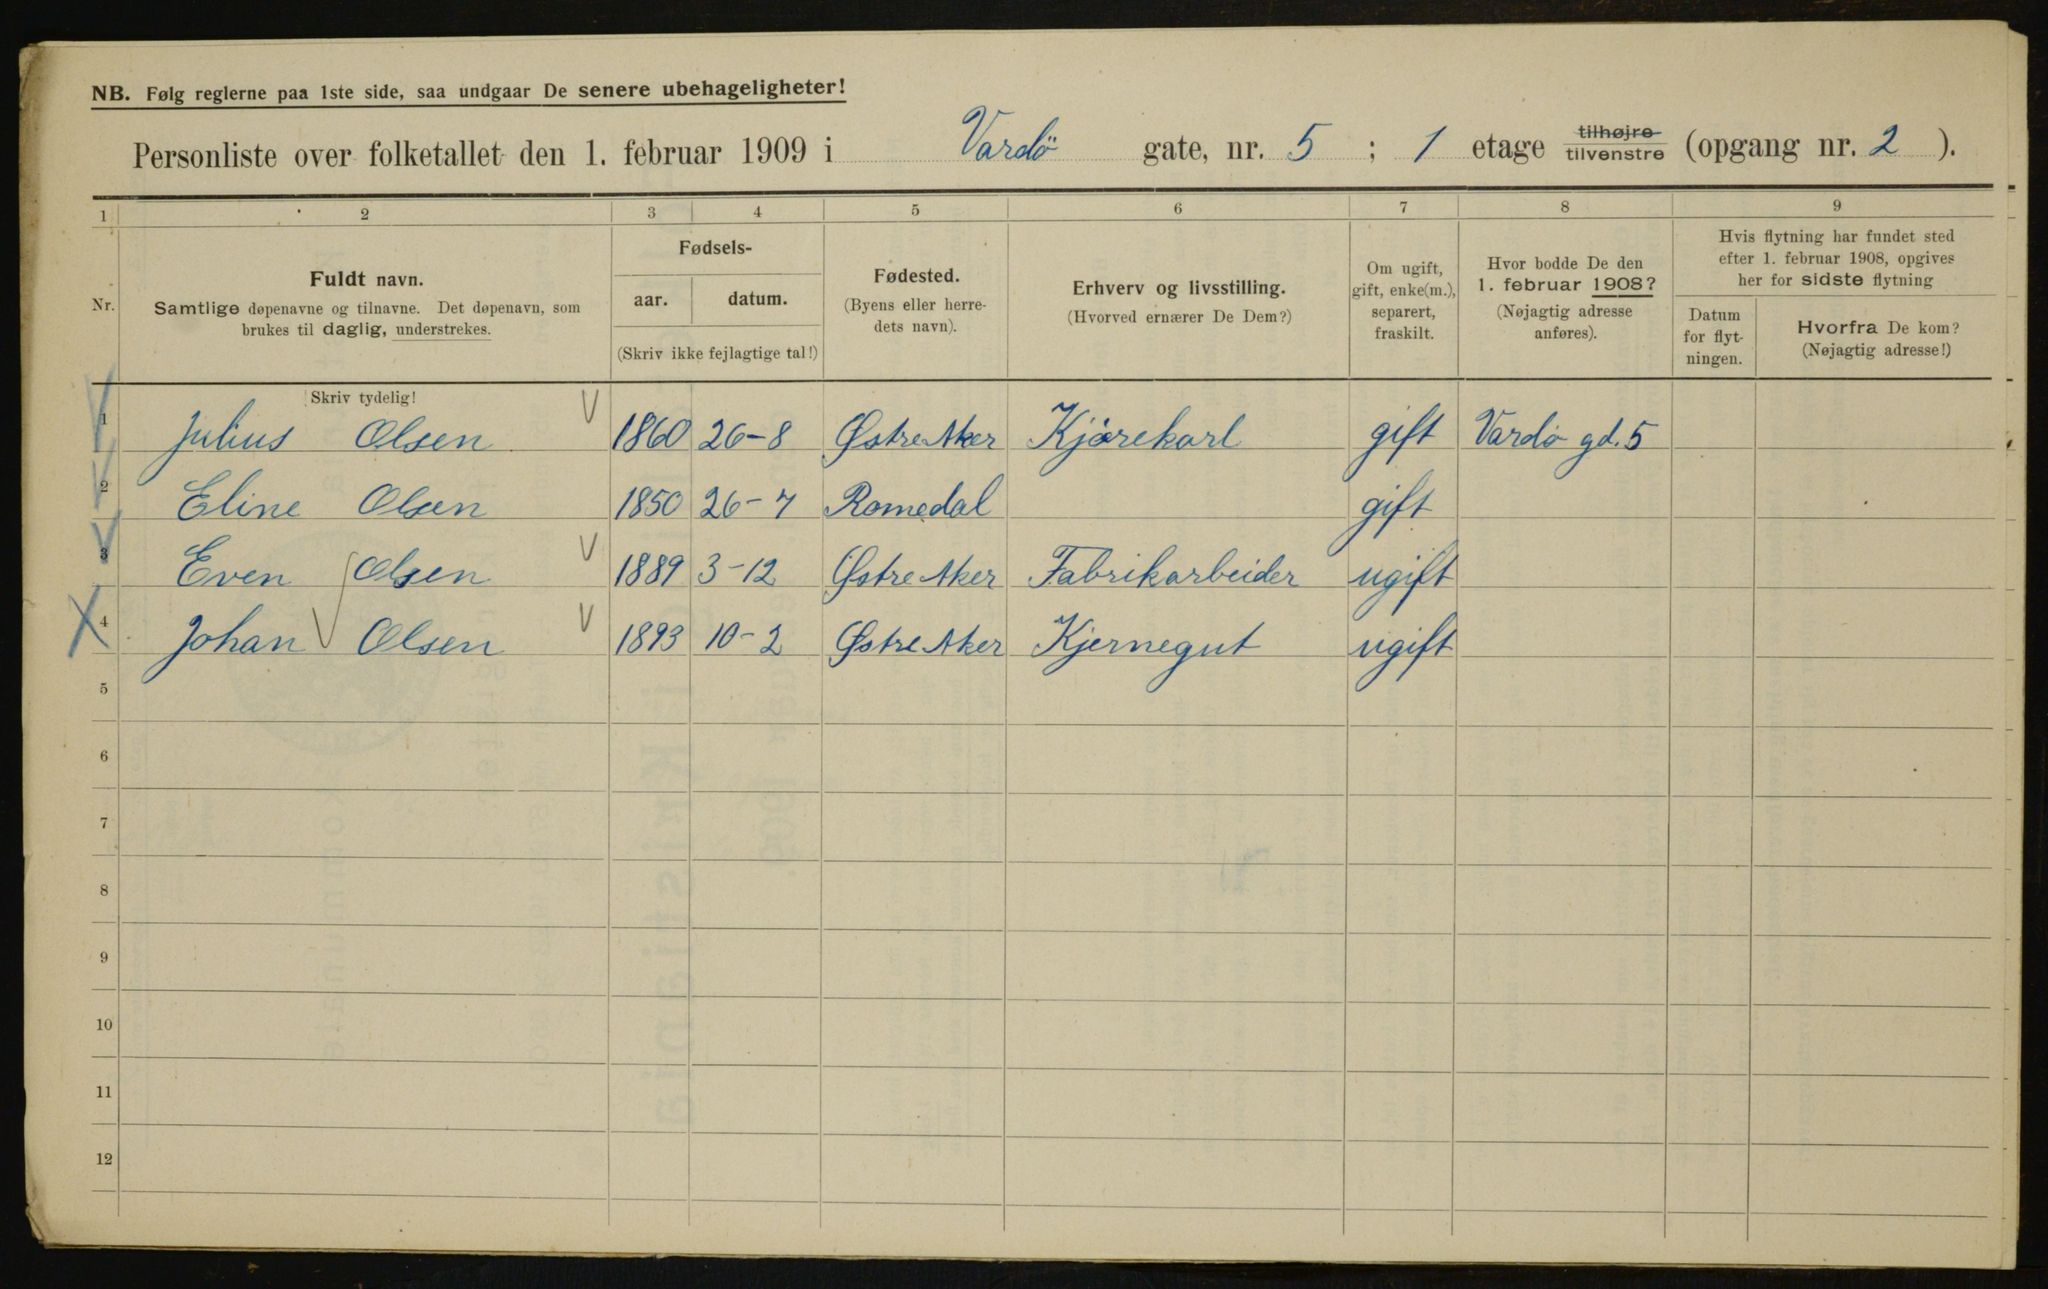 NB. Følg reglerne paa 1ste side, saa undgaar De senere ubehageligheter!
Personliste over folketallet den 1. februar 1909 i Vardö gate, nr. 5 ; 1 etage tilhøjre tilvenstre (opgang nr. 2 ).
1 2 3 4 5 6 7 8 9
Nr.
Fuldt navn.
Samtlige døpenavne og tilnavne. Det døpenavn, som
brukes til daglig, understrekes.
Fødsels-
aar. datum.
(Skriv ikke fejlagtige tal!)
Fødested.
(Byens eller herre-
dets navn).
Erhverv og livsstilling.
(Hvorved ernærer De Dem?)
Om ugift,
gift, enke(m.),
separert,
fraskilt.
Hvor bodde De den
1. februar 1908?
(Nøjagtig adresse
anføres).
Hvis flytning har fundet sted
efter 1. februar 1908, opgives
her for sidste flytning
Datum
for flyt-
ningen.
Hvorfra De kom?
(Nøjagtig adresse!)
Skriv tydelig!
1 Julius Olsen 1860 26-8 Østre Aker Kjørekarl gift Vardö gd. 5
2 Eline Olsen 1850 26-7 Romedal gift
3 Even Olsen 1889 3-12 Østre Aker Fabrikarbeider ugift
4 Johan Olsen 1893 10-2 Østre Aker Kjernegut ugift
5
6
7
8
9
10
11
12